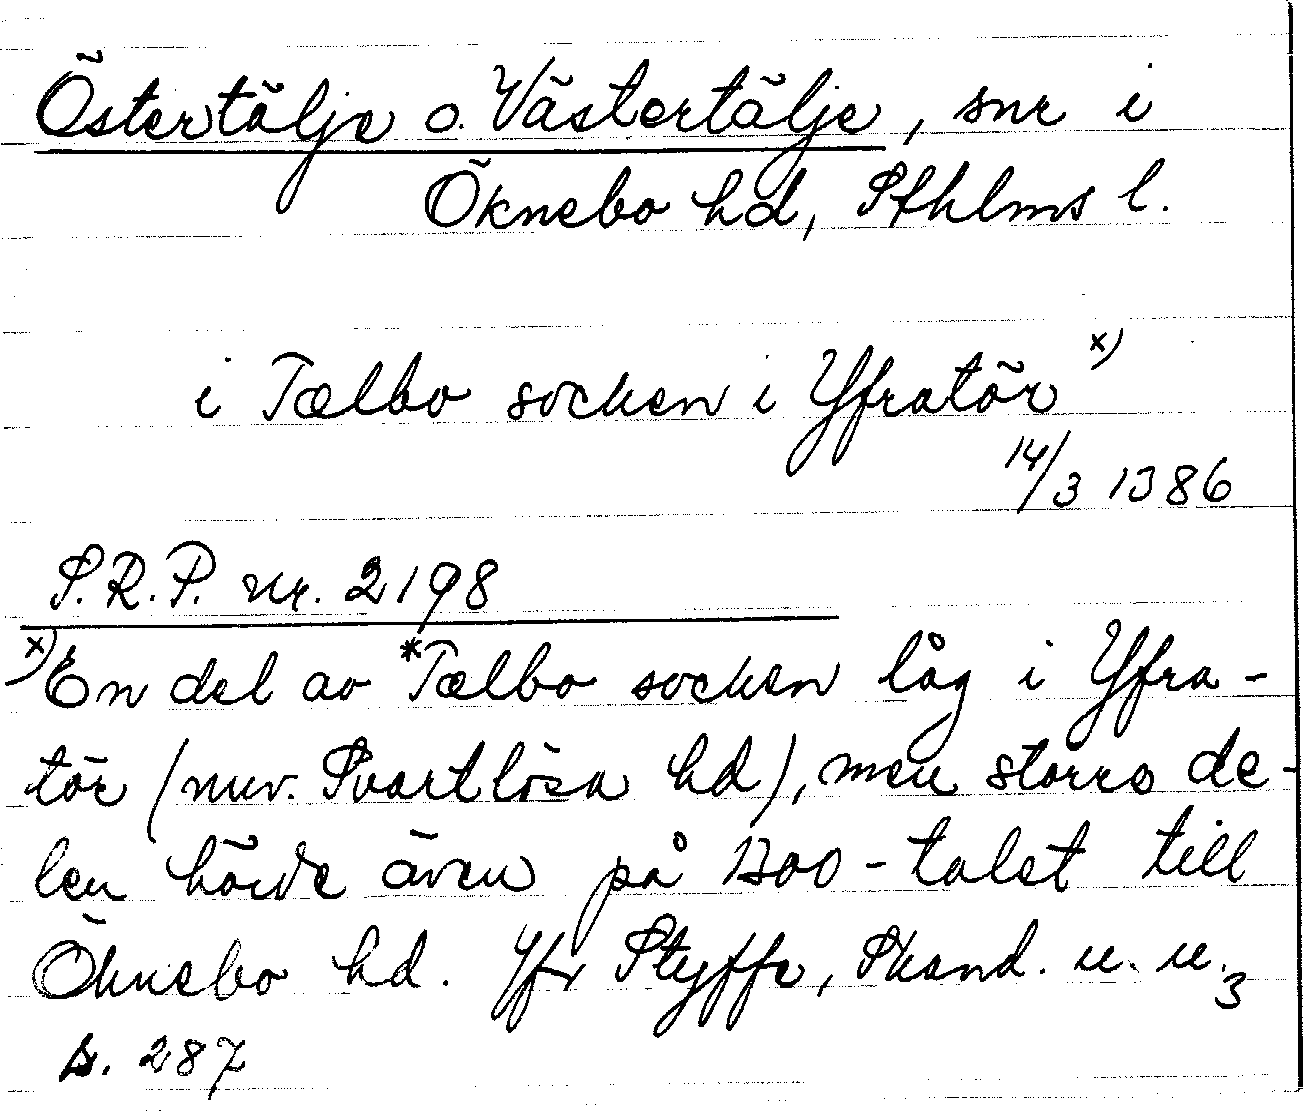 Östertälje o. Västertälje, snr i
Öknebo hd, Sthlms l.
i Tælbo socken i Yfratör x)
14/3 1386
S.R.P. nr. 2198
x) En del av *Tælbo socken låg i Yfra-
tör (nuv. Svartlösa hd), men större de-
len hörde även på 1300-talet till
Öknebo hd. Jfr Styffe, Skand. u. u.3
s. 287